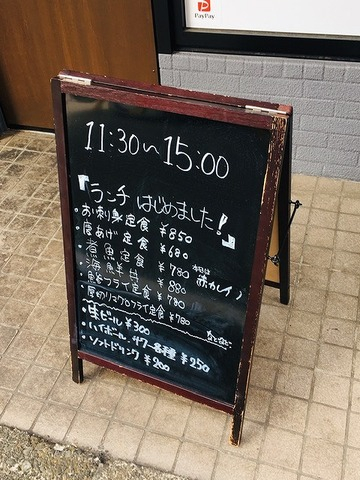 PayPay
11:30～15:00
『ランチ はじめました!』
・お刺身定食 ¥850
・唐あげ定食 ¥680
・煮魚定食 ¥780
・海鮮丼 ¥880
・魚フライ定食 ¥780
・厚切りマグロフライ定食 ¥780
・生ビール ¥300
・ハイボール・サワー各種 ¥250
・ソフトドリンク ¥200